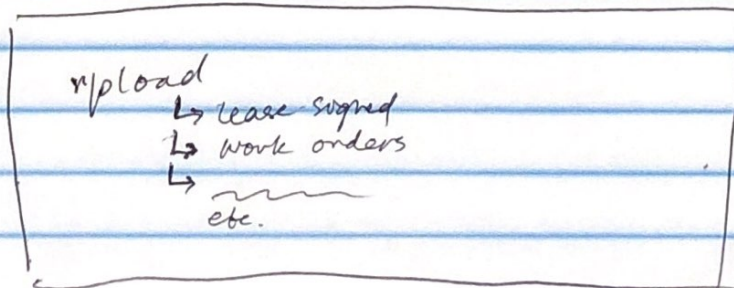 upload
↳ lease signed
↳ work orders
↳
etc.